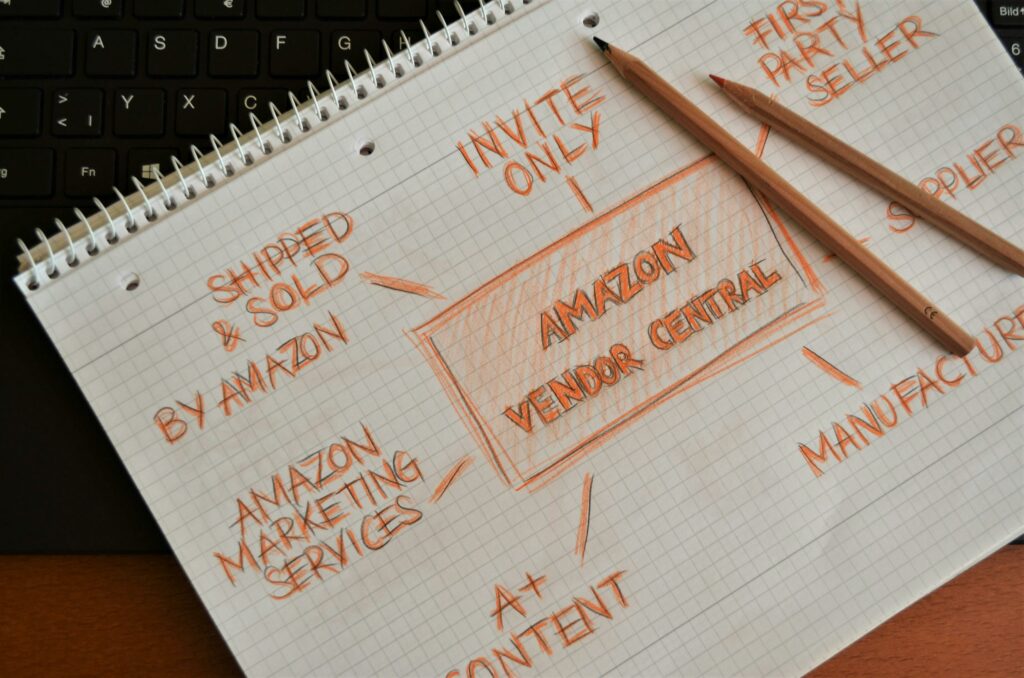 A S D F G H
> < | Y X C
Fn
Bild
6
€
INVITE
ONLY
FIRST
PARTY
SELLER
SUPPLIER
SHIPPED
& SOLD
BY AMAZON
AMAZON
VENDOR CENTRAL
MANUFACTURE
AMAZON
MARKETING
SERVICES
A+
CONTENT
CE